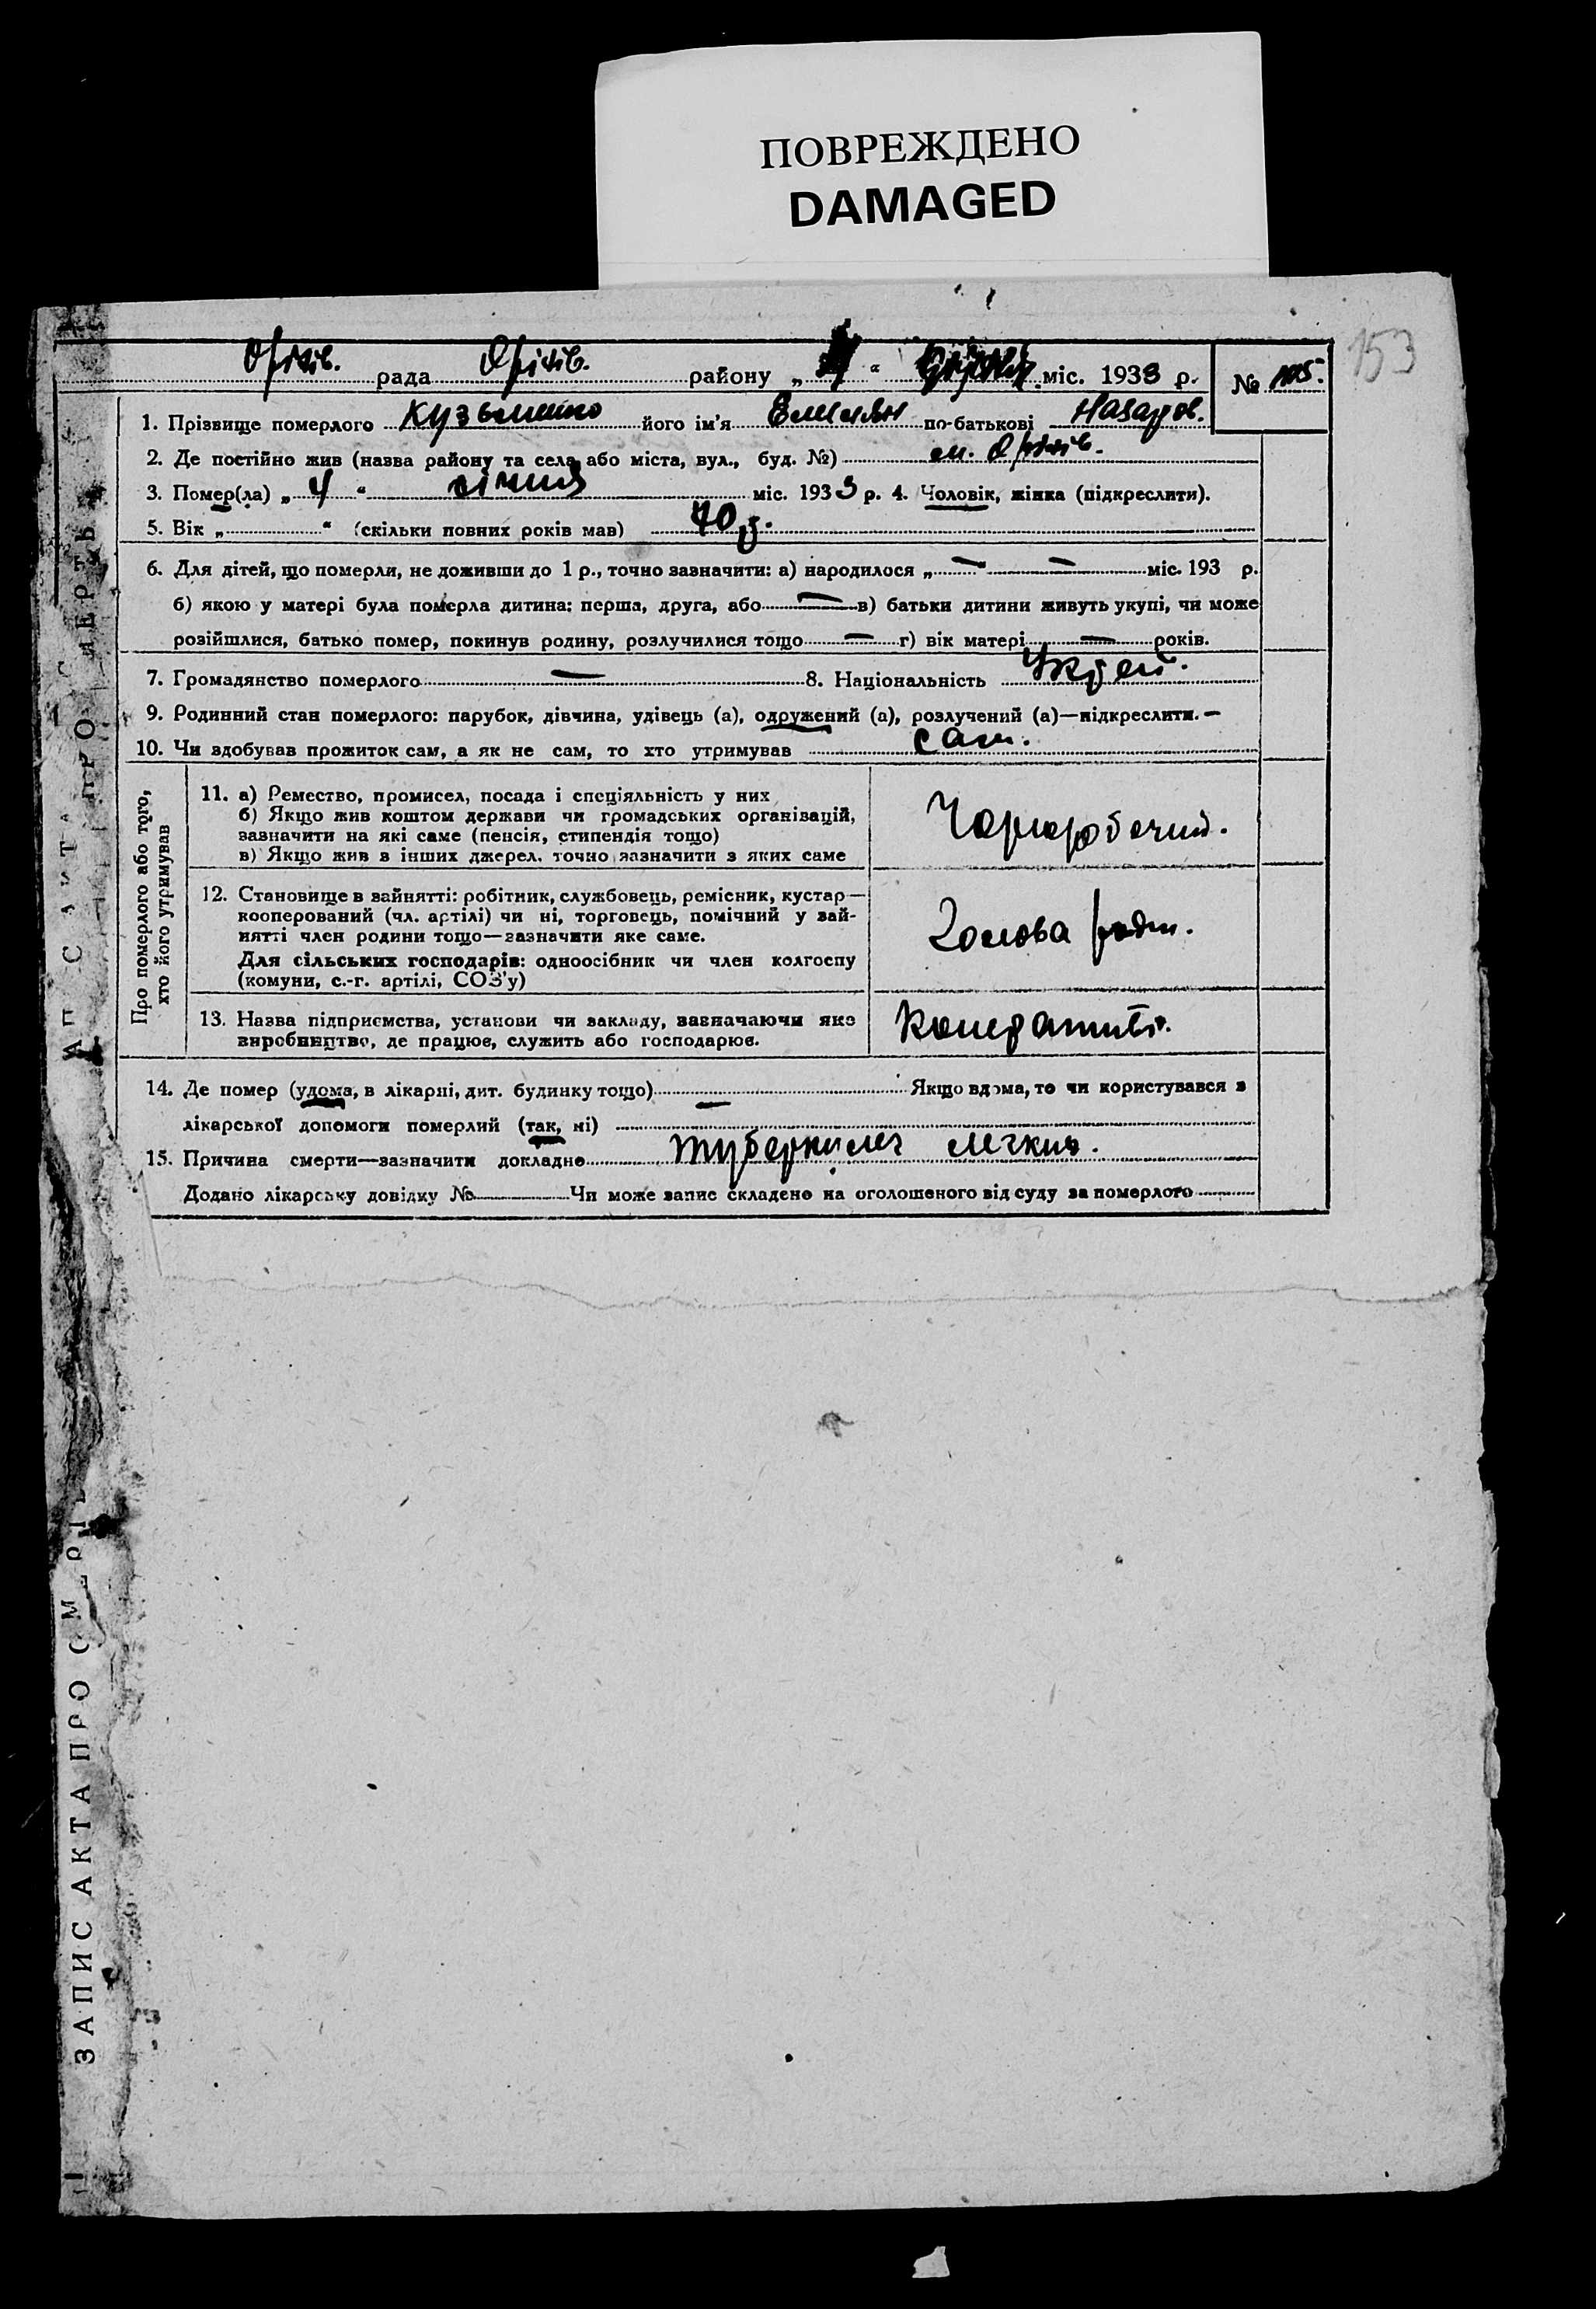 ПОВРЕЖДЕНО
DAMAGED
153
Оріхів. рада Оріхів. району „ “ міс. 1933 р. № 105.
1. Прізвище померлого Кузьменко його ім'я Емельян по-батькові Назаров.
2. Де постійно жив (назва району та села або міста, вул., буд. №) м. Оріхів.
3. Помер(ла) „ 4 “ січня міс. 1933 р. 4. Чоловік, жінка (підкреслити).
5. Вік „ “ (скільки повних років мав) 70 р.
6. Для дітей, що померли, не доживши до 1 р., точно зазначити: а) народилося „ — “ — міс. 193 р.
б) якою у матері була померла дитина: перша, друга, або — в) батьки дитини живуть укупі, чи може
розійшлися, батько помер, покинув родину, розлучилися тощо — г) вік матері — років.
7. Громадянство померлого — 8. Національність Украй.
9. Родинний стан померлого: парубок, дівчина, удівець (а), одружений (а), розлучений (а)—підкреслити. —
10. Чи здобував прожиток сам, а як не сам, то хто утримував сам.
Про померлого або того,
хто його утримував
11. а) Ремество, промисел, посада і спеціяльність у них
б) Якщо жив коштом держави чи громадських організацій,
зазначити на які саме (пенсія, стипендія тощо)
в) Якщо жив в інших джерел, точно зазначити з яких саме
Чорноробочий.
12. Становище в зайнятті: робітник, службовець, ремісник, кустар—
кооперований (чл. артілі) чи ні, торговець, помічний у зай-
нятті член родини тощо—зазначити яке саме.
Для сільських господарів: одноосібник чи член колгоспу
(комуни, с.-г. артілі, СОЗ'у)
Голова родн.
13. Назва підприємства, установи чи закладу, зазначаючи яке
виробництво, де працює, служить або господарює.
14. Де помер (удома, в лікарні, дит. будинку тощо) — Якщо вдома, то чи користувався з
лікарської допомоги померлий (так, ні)
15. Причина смерти—зазначити докладно туберкульоз легких.
Додано лікарську довідку № Чи може запис складено на оголошеного від суду за померлого
ЗАПИС АКТА ПРО СМЕРТЬ